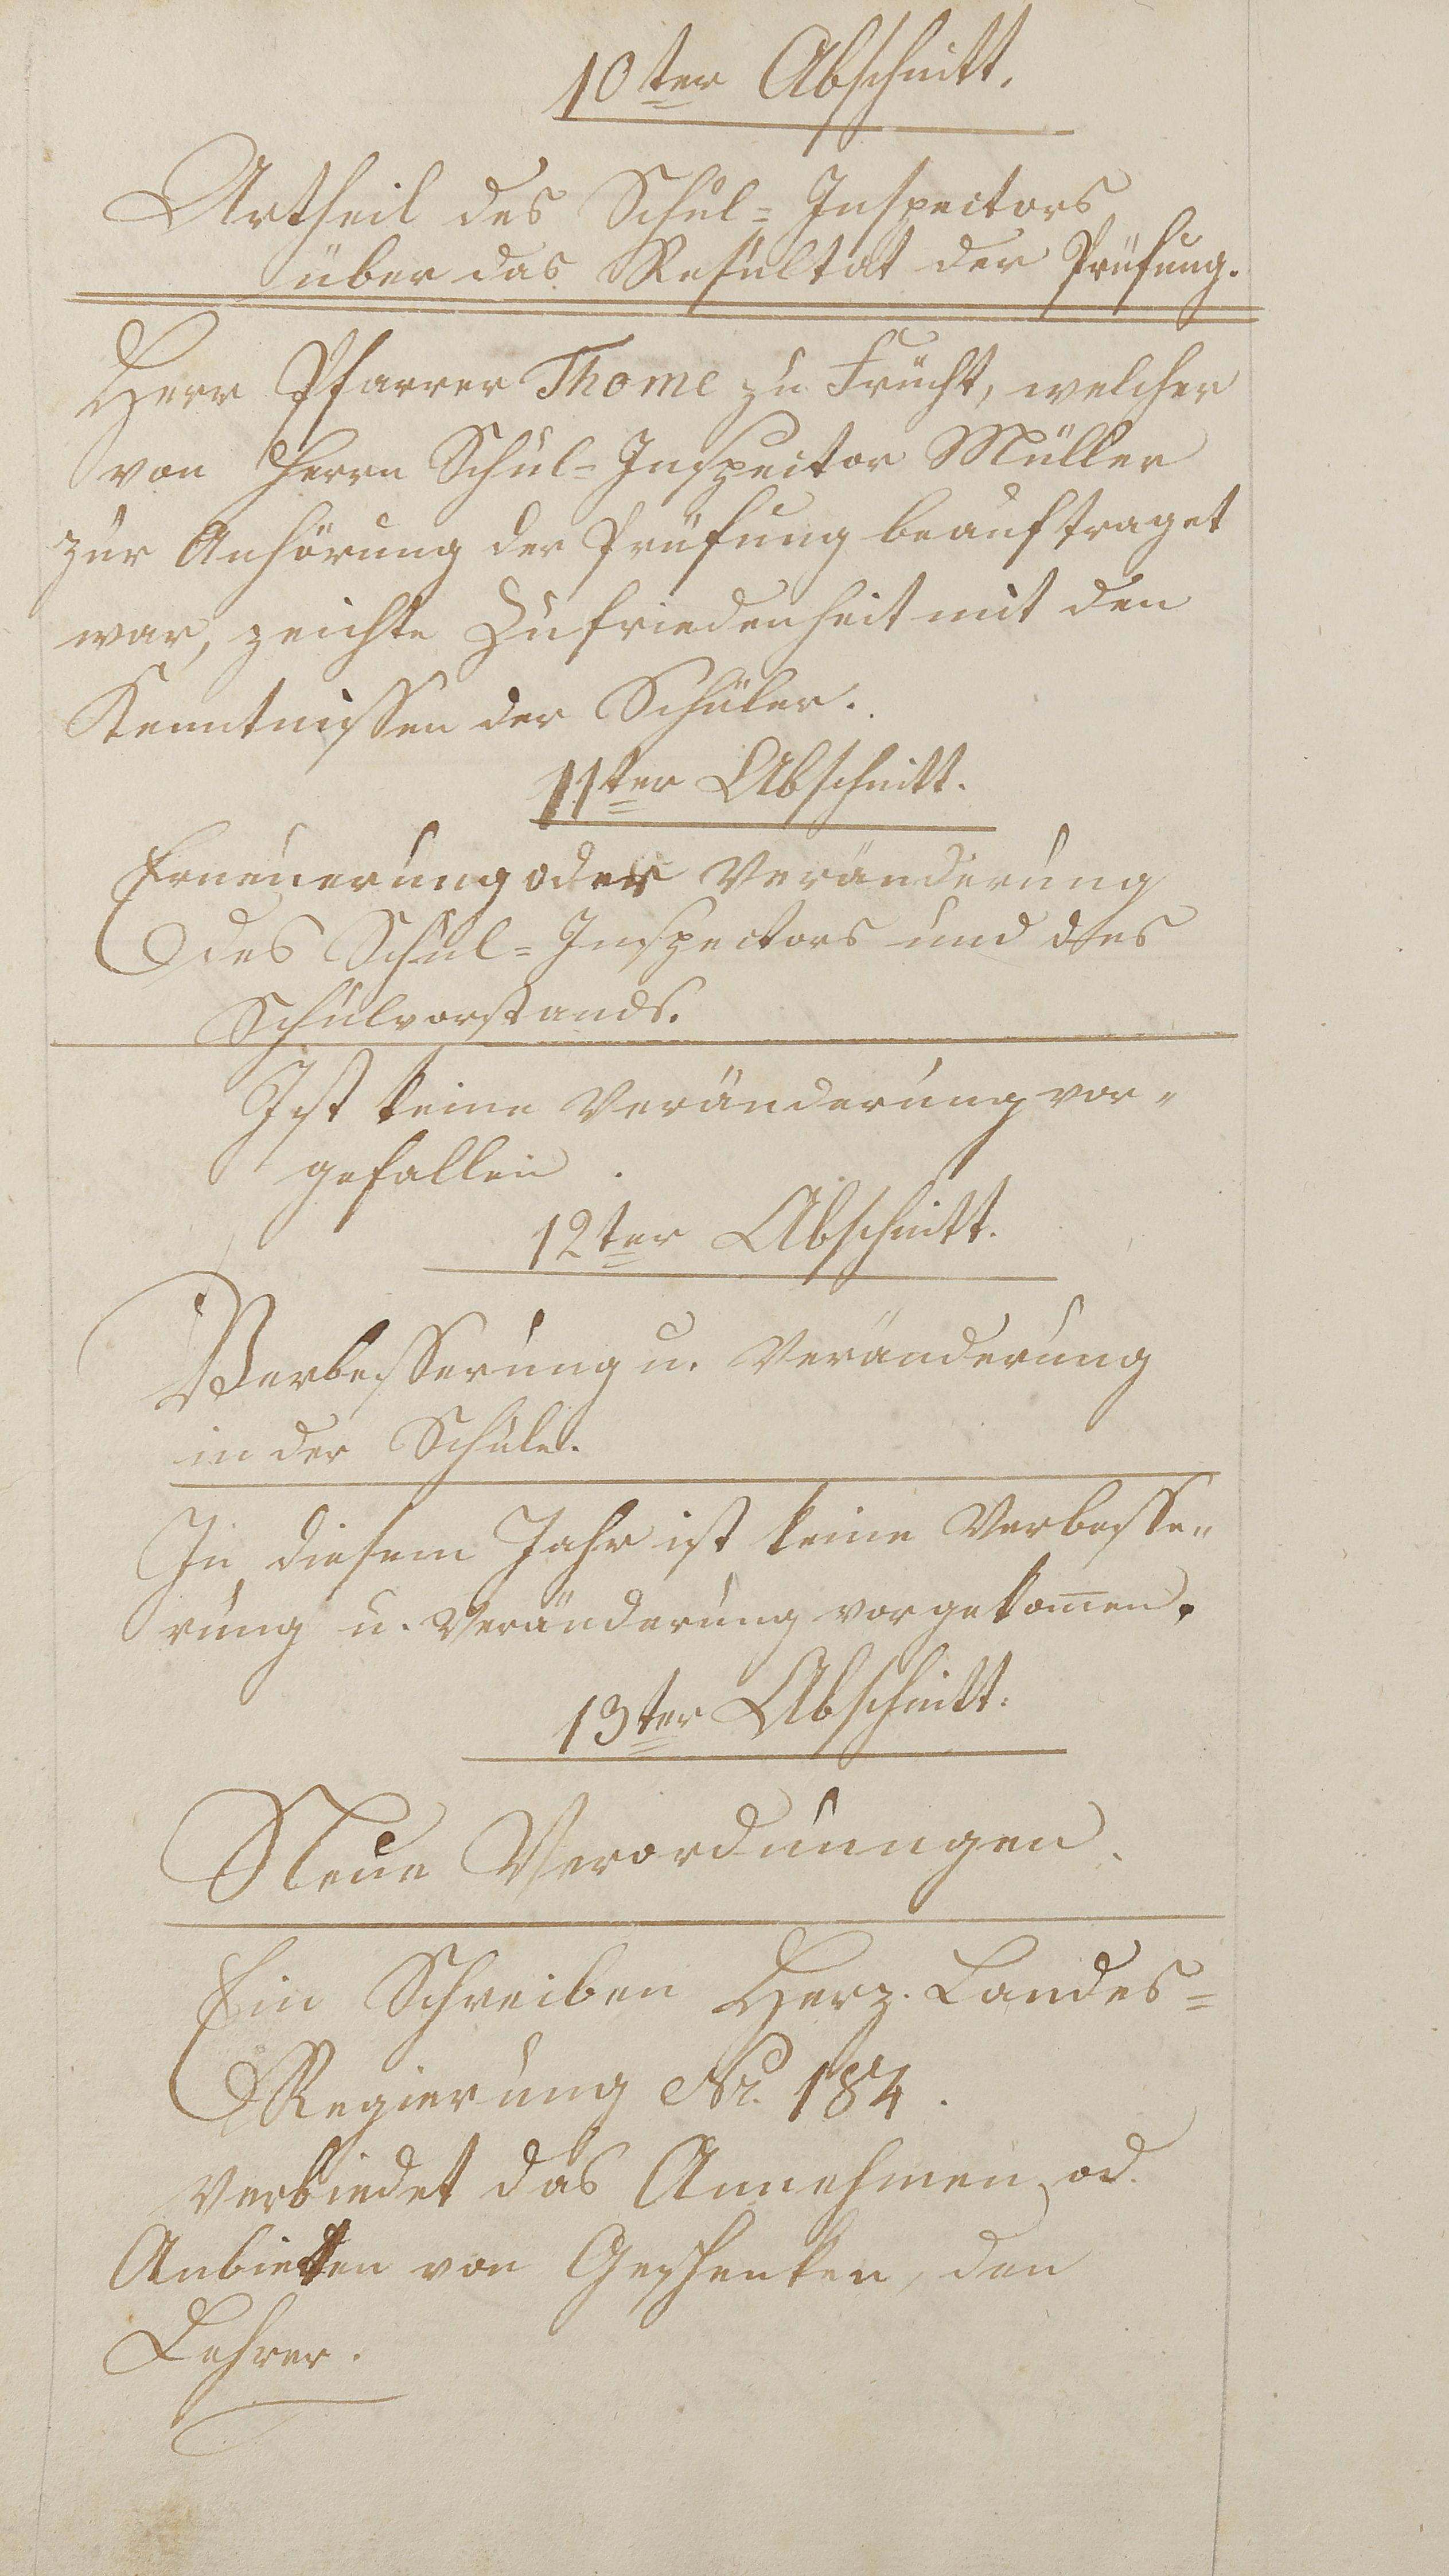 10ter Abschnitt.
Urtheil des Schul=Inspectors
über das Resultat der Prüfung.
Herr Pfarrer Thome zu Frücht, welcher
von Herrn Schul=Inspector Müller
zur Anhörung der Prüfung beauftraget
war, zeichte Zufriedenheit mit den
Kenntnissen der Schüler.
11ter Abschnitt.
Erneuerung oder Veränderung
des Schul=Inspectors und des
Schulvorstands.
Ist keine Veränderung vor-
gefallen.
12ter Abschnitt.
Verbesserung u. Veränderung
in der Schule.
In diesem Jahr ist keine Verbesse-
rung u. Veränderung vorgekom̅en.
13ter Abschnitt.
Neue Verordnungen.
Ein Schreiben Herz. Landes=
Regierung Nr. 184.
verbiedet das Annehmen od.
Anbietten von Geschenken, den
Lehrer.